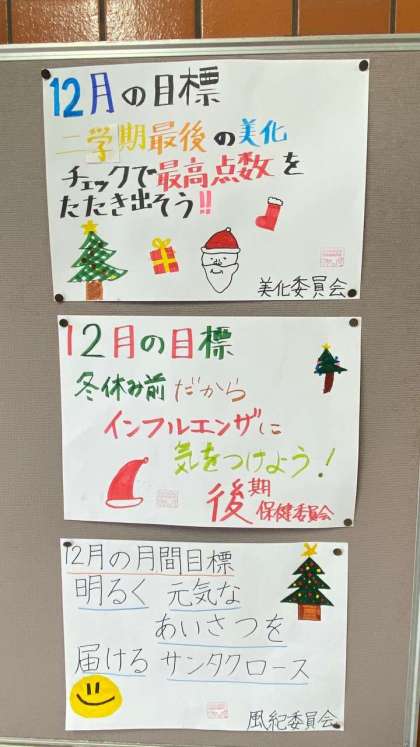 12月の目標
二学期最後の美化
チェックで最高点数を
たたき出そう!!
美化委員会
12月の目標
冬休み前だから
インフルエンザに
気をつけよう!
後期
保健委員会
12月の月間目標
明るく 元気な
あいさつを
届ける サンタクロース
風紀委員会